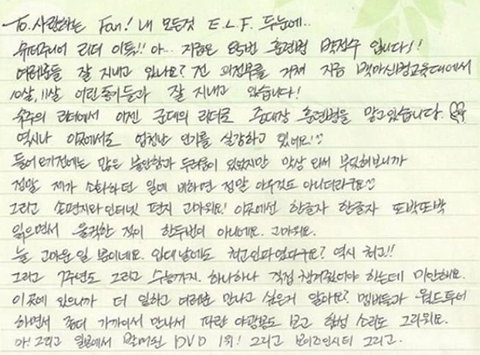 To. 사랑하는 Fan! 내 모든것 E.L.F. 두눈에..
슈퍼주니어 리더 이특!! 아... 지금은 85번 훈련병 박정수 입니다!
여러분들 잘 지내고 있나요? 전 의정부를 거쳐 지금 백마신병교육대에서
10살, 11살 어린 동이들과 잘 지내고 있습니다!
슈주의 리더에서 이젠 군대의 리더로 중대장 훈련병을 맡고있습니다.
역시나 이곳에서도 엄청난 인기를 실감하고 있어요!
들어오기전에는 많은 불안함과 두려움이 있었지만 막상 와서 부딪혀보니까
정말 제가 소화하던 일에 비하면 정말 아무것도 아니더라구요
그리고 손편지와 인터넷 편지 고마워요! 이곳에선 한글자 한글자 또박또박
읽으면서 울컥한 적이 한두번이 아니네요. 고마워요.
늘 고마운 일 뿐이네요. 입대날에도 최고인파였다구요? 역시 최고!!
그리고 7주년도 그리고 수능까지. 하나하나 직접 챙겨줬어야 하는데 미안해요.
이곳에 있으니까 더 일하고 여러분 만나고 싶은거 알아요? 멤버들과 월드투어
하면서 좀더 가까이서 만나서 파란 야광봉도 보고 함성 소리도 그리워요.
아! 그리고 일본에서 발매된 DVD 1위! 그리고 보이즈인시티 그리고..